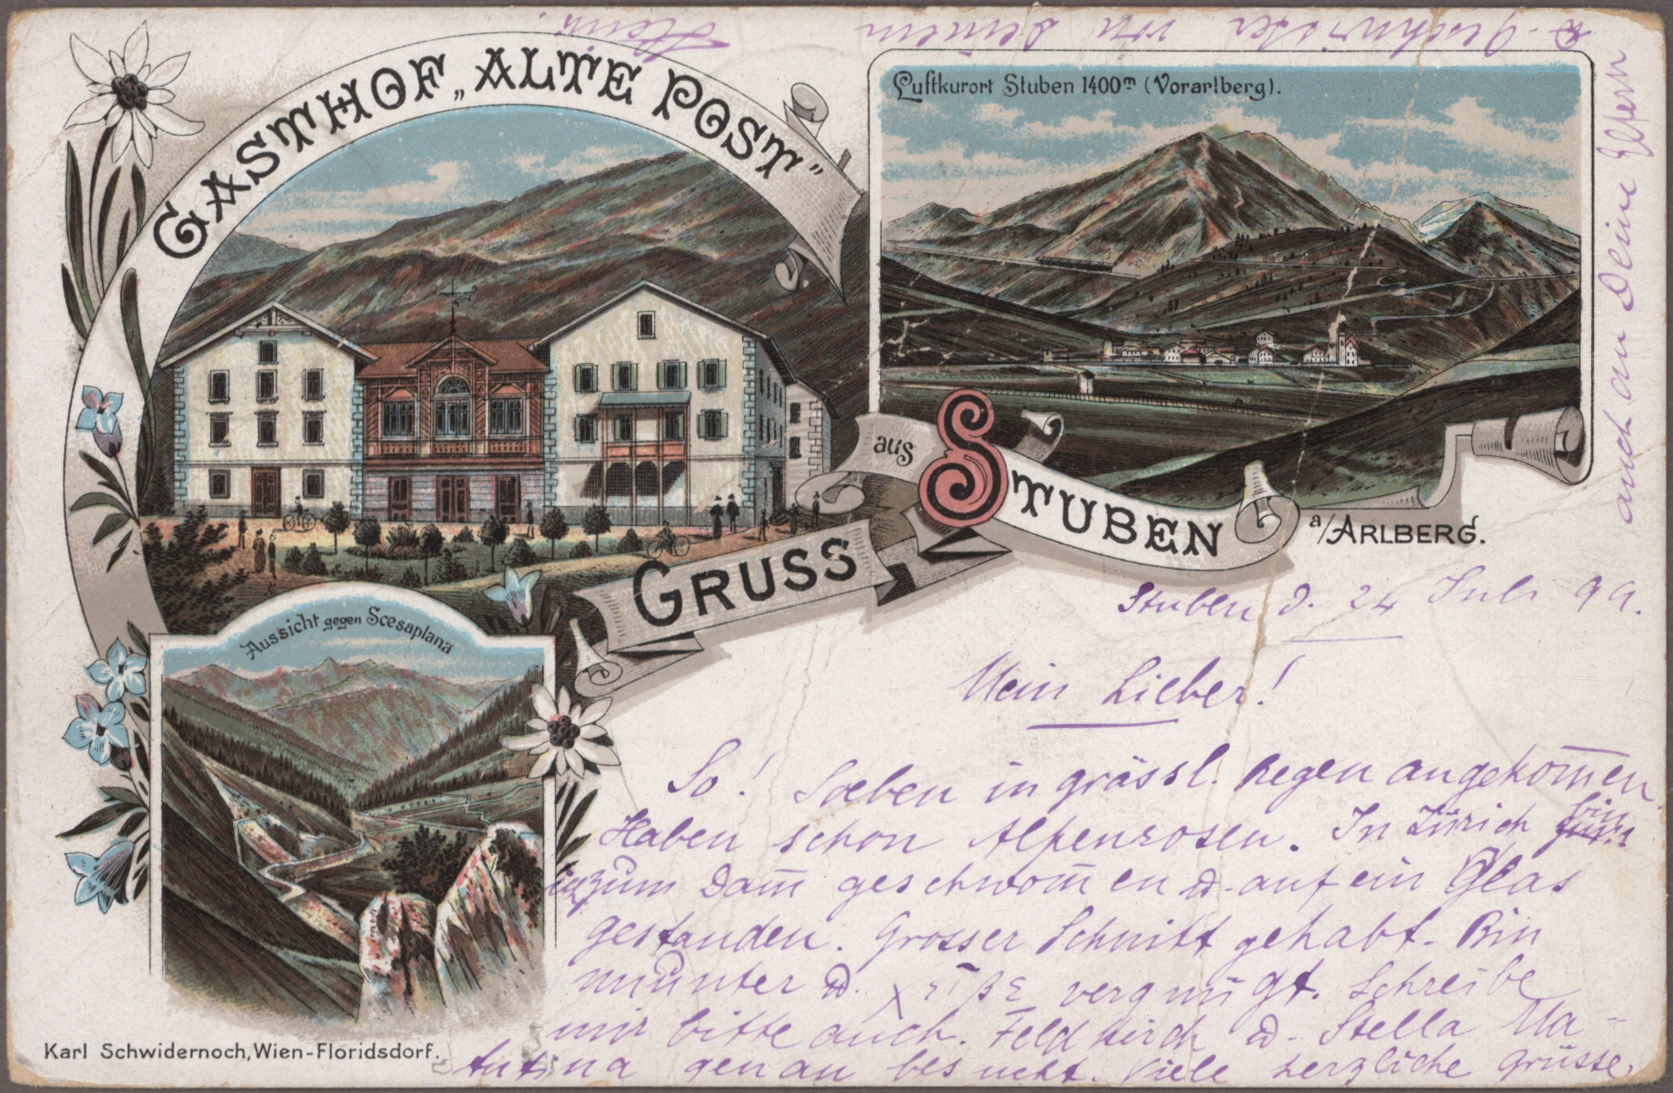 GASTHOF „ALTE POST"
Luftkurort Stuben 1400m (Vorarlberg).
aus
STUBEN
a/ARLBERG.
GRUSS
Aussicht gegen Scesaplana
Karl Schwidernoch, Wien-Floridsdorf.
Stuben d. 24 Juli 99.
Mein Lieber!
So! Soeben in grässl. Regen angekom̅en
Haben schon Alpenrosen. In Zürich bin
zum Dam̅ geschwom̅en u. auf ein Glas
gestanden. Grosser Schnitt gehabt. Bin
munter u. vergnügt. Schreibe
mir bitte auch. Feldkirch u. Stella Ma-
tutina genau besucht. Viele herzliche Grüsse,
auch an Deine Eltern
u. Geschwister von Deinem